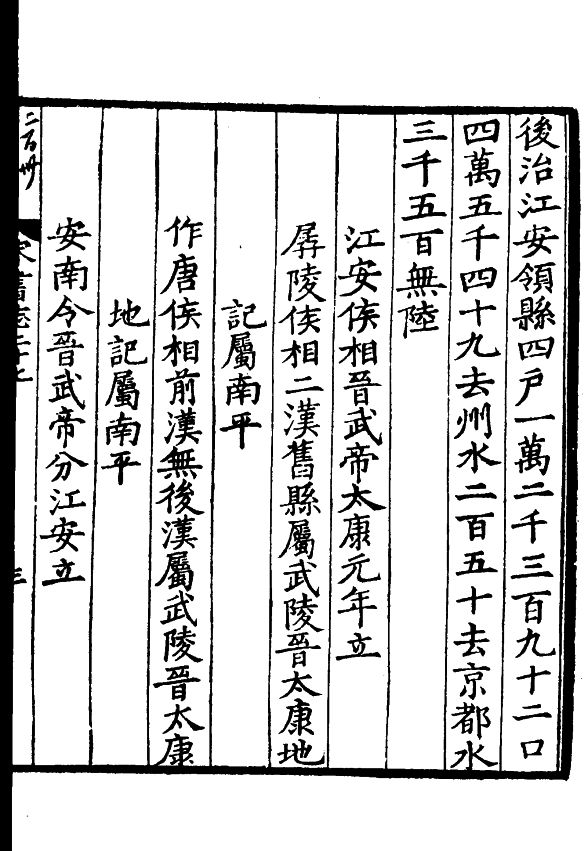 後治江安領縣四戶一萬二千三百九十二口
四萬五千四十九去州水二百五十去京都水
三千五百無陸
江安侯相晉武帝太康元年立
孱陵侯相二漢舊縣屬武陵晉太康地
記屬南平
作唐侯相前漢無後漢屬武陵晉太康
地記屬南平
安南令晉武帝分江安立
二百卅
宋書志二十七
三